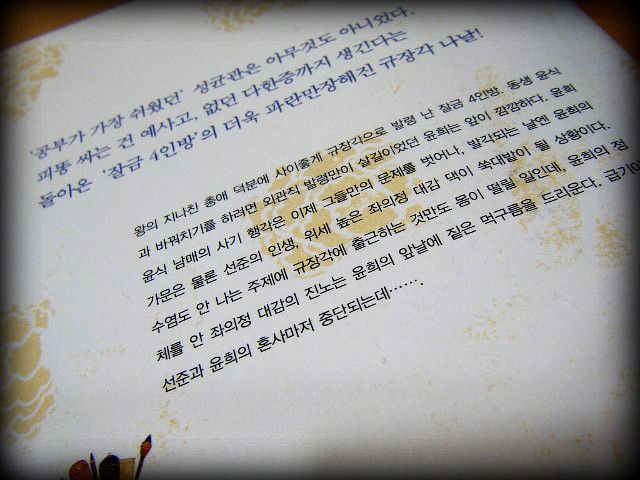 '공부가 가장 쉬웠던' 성균관은 아무것도 아니었다.
피똥 싸는 건 예사고, 없던 다한증까지 생긴다는
돌아온 '잘금 4인방'의 더욱 파란만장해진 규장각 나날!
왕의 지나친 총애 덕분에 사이좋게 규장각으로 발령 난 잘금 4인방. 동생 윤식
과 바꿔치기를 하려면 외관직 발령만이 살길이었던 윤희는 앞이 깜깜하다. 윤희
윤식 남매의 사기 행각은 이제 그들만의 문제를 벗어나, 발각되는 날엔 윤희의
가문은 물론 선준의 인생, 위세 높은 좌의정 대감 댁이 쑥대밭이 될 상황이다.
수염도 안 나는 주제에 규장각에 출근하는 것만도 몸이 떨릴 일인데, 윤희의 정
체를 안 좌의정 대감의 진노는 윤희의 앞날에 짙은 먹구름을 드리운다. 급기야
선준과 윤희의 혼사마저 중단되는데…….